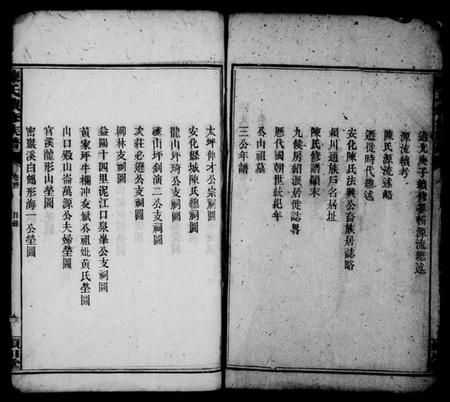 道光庚子續修舊輯源流總述
源流續考
陳氏源流述略
遷徙時代總述
安化陳氏法興公裔族居誌略
潁川通族戶名居址
陳氏修譜顛末
九侯房紹派居徙誌畧
歷代國朝世系紀年
公山祖墓
三公年譜
太坪仲才公宗祠圖
安化縣城陳氏總祠圖
龍山坪琦公支祠圖
山坪釗演二公支祠圖
莊必遷公支祠圖
柳林支祠圖
益陽十四里泥江口泉峯公支祠圖
黃家坪牛欄冲友斌公祖妣黃氏塋圖
山口殿山崙萬源公夫婦塋圖
官溪龍形山塋圖
密巖溪白鶴形海一公塋圖
目錄